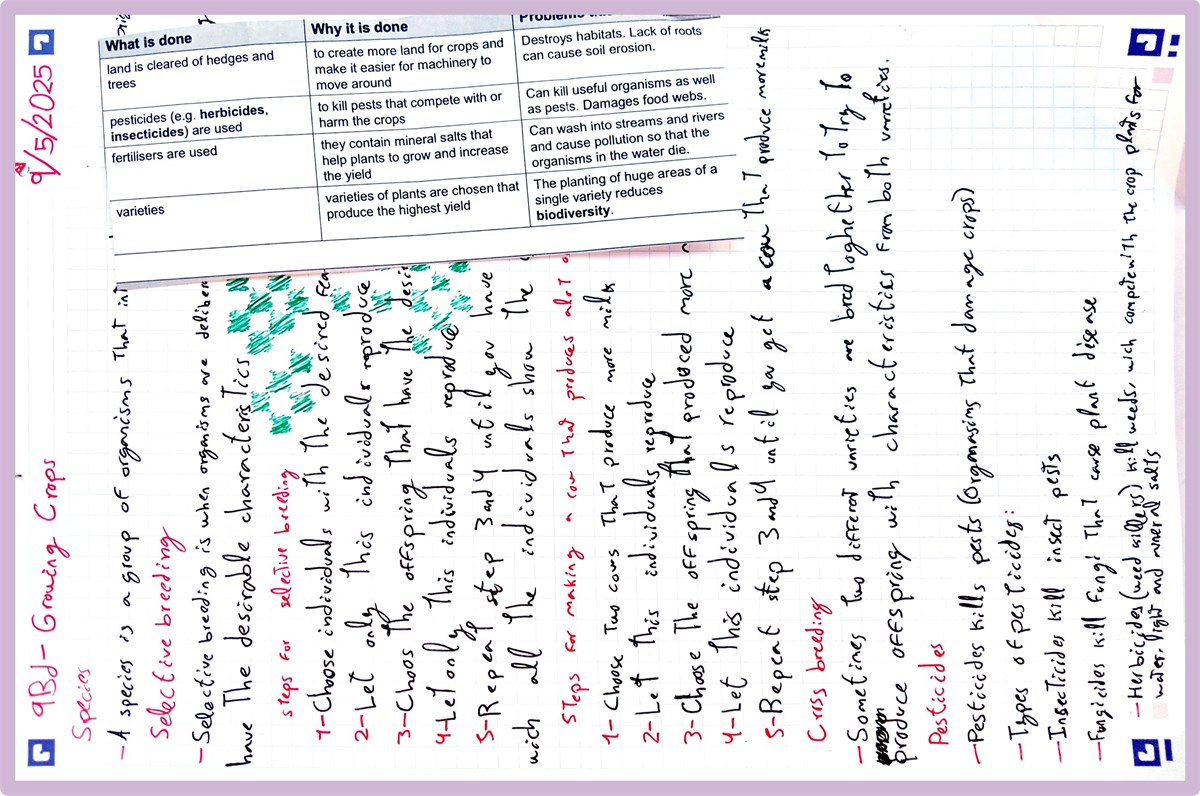 9/5/2025
9Bd - Growing Crops
Species
- A species is a group of organisms That
Selective breeding
- Selective breeding is when organisms are
have The desirable characteristics
steps for selective breeding
1- Choose individuals with The desired
2- Let only This individuals reproduce
3- Choos The offspring That have The
4- Let only This individuals reproduce
5- Repeat step 3 and 4 until you have
with all The individuals show The
Steps for making a cow That produces alot
1- Choose Two cows That produce more milk
2- Let This individuals reproduce
3- Choose The offspring that produced more
4- Let This individuals reproduce
5- Repeat step 3 and 4 until you get a cow That produce more milk
Criss breeding
- Sometines Two different varieties are bred toghether To try To
produce offspring with characteristics from both varieties.
Pesticides
- Pesticides kills pests (Orgmasing That damage crops)
- Types of pesticides:
- Insecticides kill insect pests
- Fungicides kill fungi That cause plant disease
- Herbicides (weed killers) kill weeds, wich compete with the crop plants for
water, light and mineral salts
What is done
Why it is done
Problems
land is cleared of hedges and
trees
to create more land for crops and
make it easier for machinery to
move around
Destroys habitats. Lack of roots
can cause soil erosion.
pesticides (e.g. herbicides,
insecticides) are used
to kill pests that compete with or
harm the crops
Can kill useful organisms as well
as pests. Damages food webs.
fertilisers are used
they contain mineral salts that
help plants to grow and increase
the yield
Can wash into streams and rivers
and cause pollution so that the
organisms in the water die.
varieties
varieties of plants are chosen that
produce the highest yield
The planting of huge areas of a
single variety reduces
biodiversity.